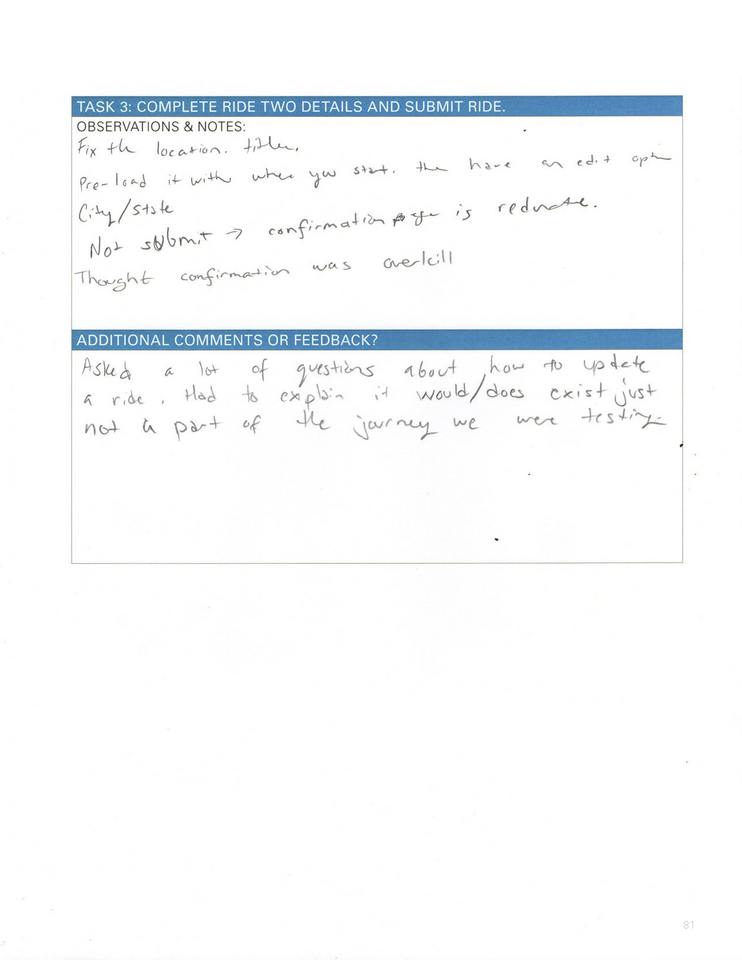 TASK 3: COMPLETE RIDE TWO DETAILS AND SUBMIT RIDE.
OBSERVATIONS & NOTES:
Fix the location. titles.
Pre-load it with where you start. the have an edit option
City/State
Not submit → confirmation page is redundate.
Thought confirmation was overkill
ADDITIONAL COMMENTS OR FEEDBACK?
Asked a lot of questions about how to update
a ride. Had to explain it would/does exist just
not a part of the journey we were testing.
81